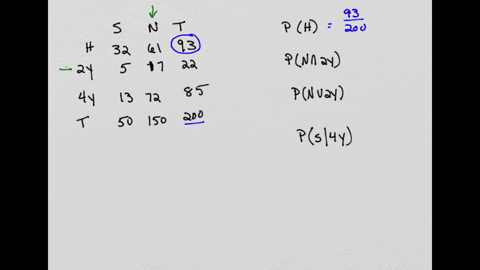 S N T
H 32 61 93
2Y 5 17 22
4Y 13 72 85
T 50 150 200
P(H) = 93/200
P(N∩2Y)
P(N∪2Y)
P(S|4Y)